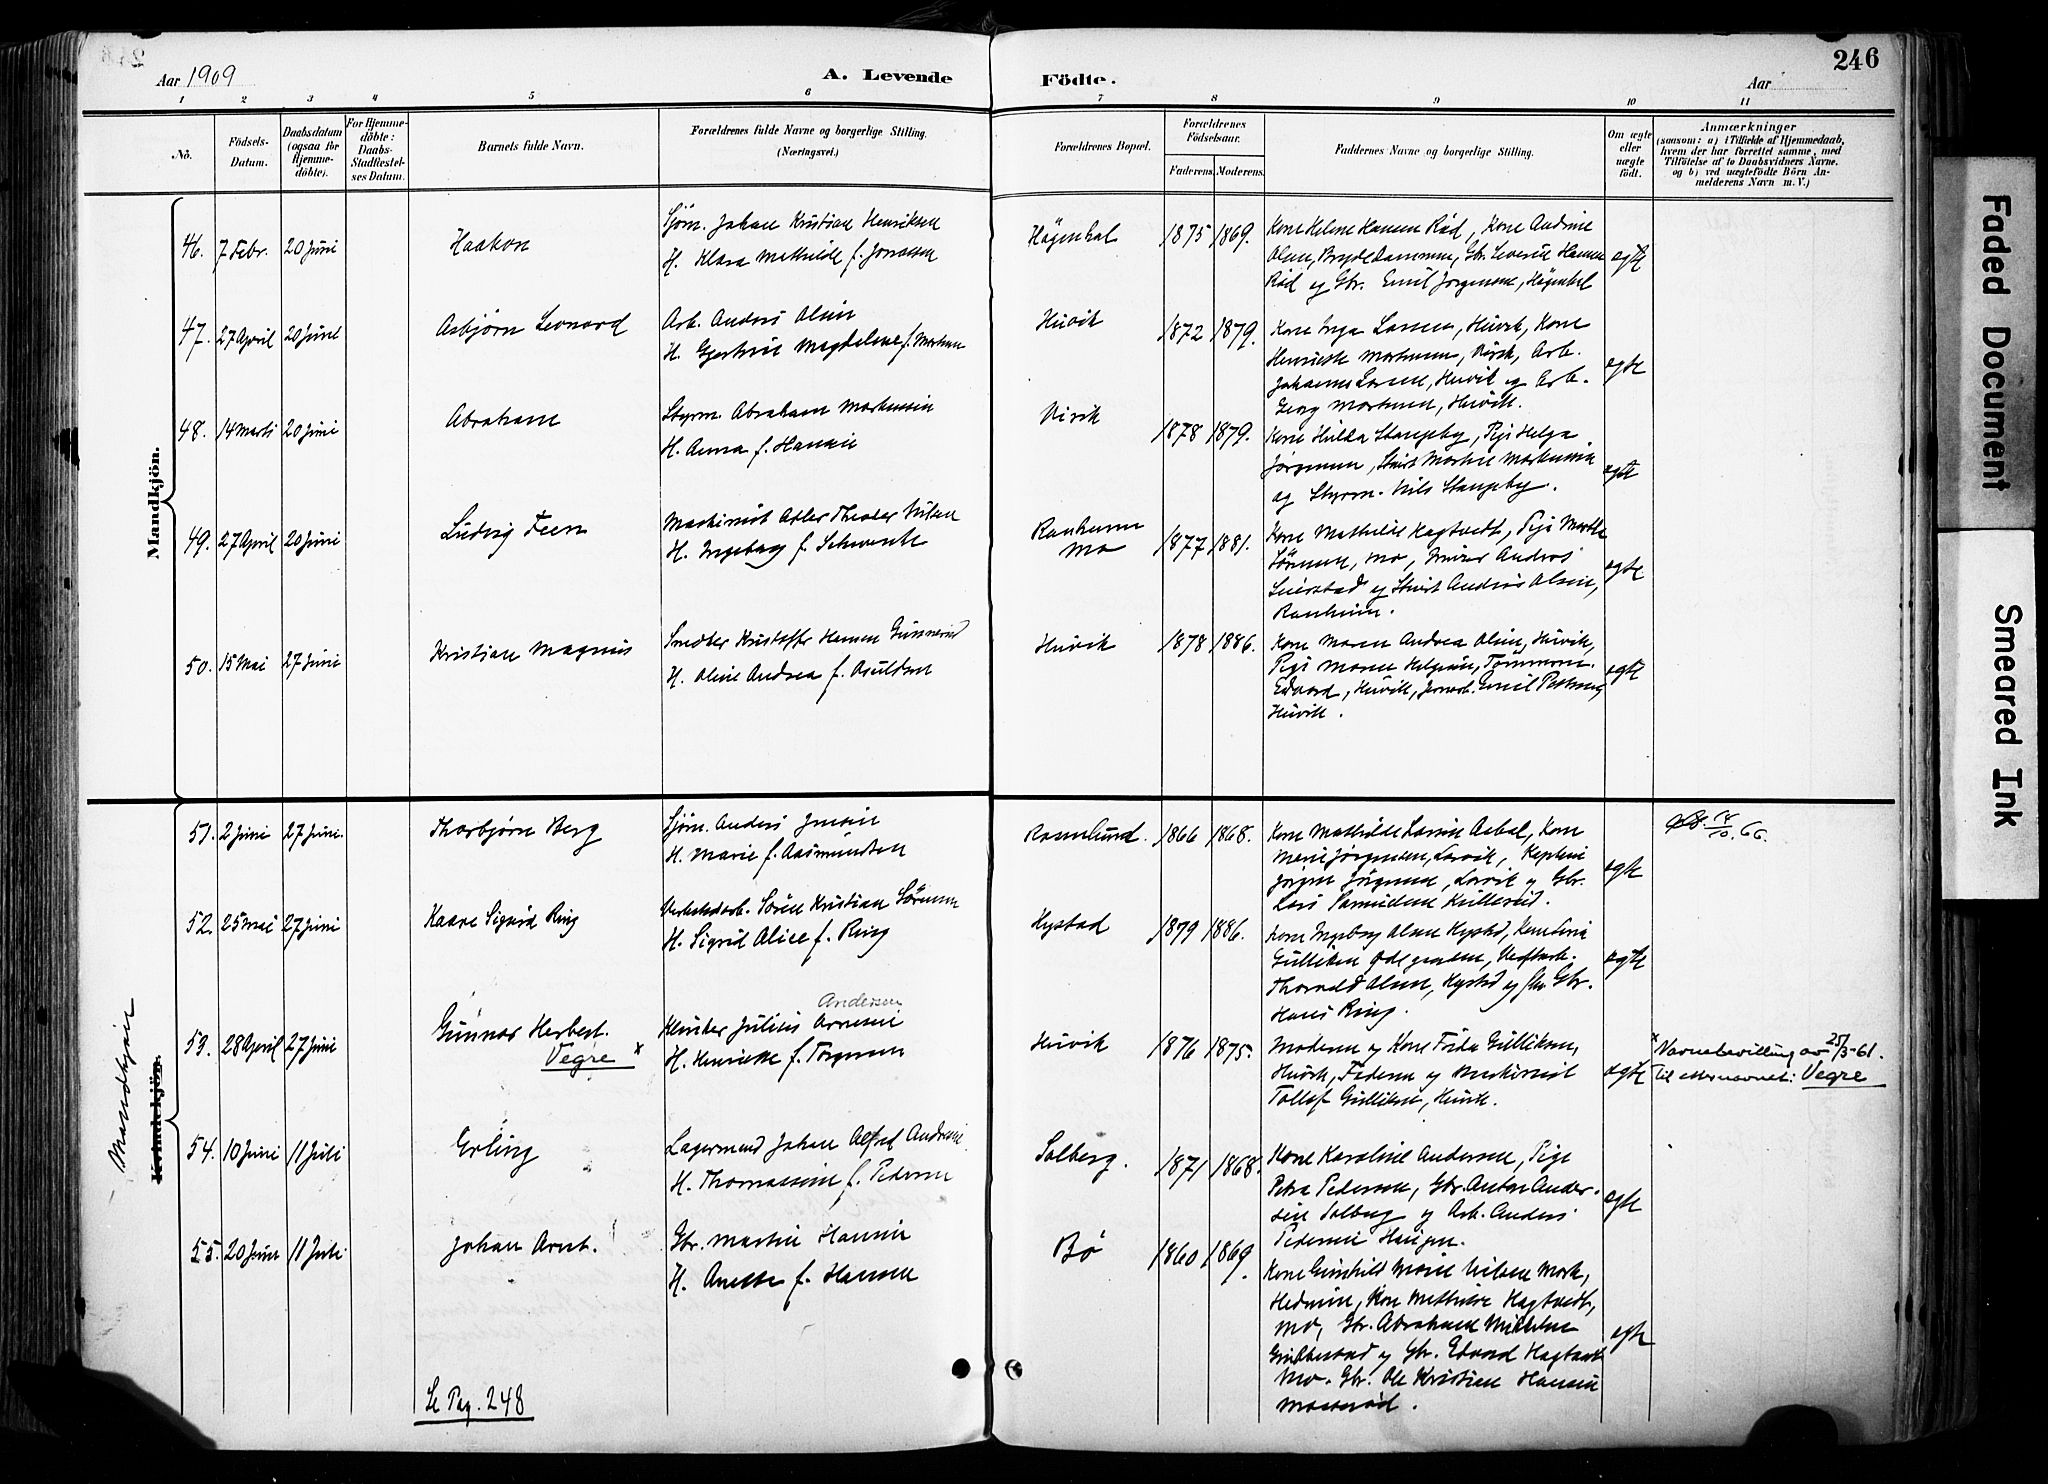 246
Aar 1909
A. Levende
Födte.
Aar
1 2 3 4 5 6 7 8 9 10 11
No.
Födsels-Datum.
Daabsdatum (ogsaa for Hjemmedöbte).
For Hjemmedöbte: Daabs-Stadfestelses Datum.
Barnets fulde Navn.
Forældrenes fulde Navne og borgerlige Stilling. (Næringsvei.)
Forældrenes Bopæl.
Forældrenes Födselsaar.
Faderens. Moderens.
Faddernes Navne og borgerlige Stilling.
Om ægte eller uægte födt.
Anmærkninger
(saasom: a) i Tilfælde af Hjemmedaab, hvem der har forrettet samme, med Tilföielse af to Daabsvidners Navne. og b) ved uægtefödte Börn Anmelderens Navn m. V.)
Mandkjön.
46. 7 Febr. 20 Juni Haakon
Sjöm. Johan Kristian Henriksen
H. Klara Mathilde f. Jonassen
1875 1869.
Kone Helene Hansen Röd, Kone Andrine
Röd og Gbr. Emil Jörgensen,
egte
47. 27 April 20 Juni Asbjörn Leonard
Arb. Anders Olsen
H. Gjertrud Magdelene f. Martinsen
Husvik 1872 1879.
Kone Inga Larsen, Husvik, Kone
Johannes Larsen, Husvik og Arb.
Georg Martinsen, Husvik.
egte
48. 14 Marts 20 Juni Abraham
Styrm. Abraham Markussen
H. Anna f. Hansen
Virik 1878 1879.
Kone Hulda Stangeby, Pige Helga
Jörgensen, Martin Markussen
og Styrm. Nils Stangeby.
egte
49. 27 April 20 Juni Ludvig Feen
H. Ingeborg f.
Ranheim
Mo
1877 1881.
Kone Mathilde Hagtvedt, Pige Marthe
Sörensen, Mo, Murer Anders
og Anders Olsen,
Ranheim.
egte
50. 15 Mai 27 Juni Kristian Magnus
H. Oline Andrea f.
Husvik 1878 1886.
Kone Maren Andrea Olsen, Husvik,
Pige Maren Helgesen, Tömmerm.
Edvard, Husvik, Emil Pettersen,
Husvik.
egte
Kvindekjön.
Mandkjön
51. 2 Juni 27 Juni. Thorbjörn Berg
Sjöm. Anders Jensen
H. Marie f. Aasmundsen
1866 1868.
Kone Mathilde Larsen Aabol, Kone
Marie Jörgensen, Larvik, Kaptein
Jörgen Jörgensen, Larvik og Gbr.
Lars
egte
14/10. 66.
52. 25 Mai 27 Juni Kaare Sigurd Ring
Verkstedarb. Sören Kristian Sörensen
H. Sigrid Alice f. Ring
Hystad 1879 1886.
Kone Ingeborg Olsen Hystad, Kone
Gulliksen Ödegaarden,
Thorvald Olsen, Hystad og Gbr.
Hans Ring.
egte
53. 28 April 27 Juni Gunnar Herbert.
Vegre x
Andersen
Julius Arnesen
H. Henrikke f. Torgersen
Husvik 1876 1875.
Moderen og Kone Frida Gulliksen,
Husvik, Faderen og Maskinist
Tollef Gulliksen, Husvik.
egte
x Navnebevilling av 25/5-61.
til etternavnet: Vegre
54. 10 Juni 11 Juli Erling
Lagermand Johan Alfred Andersen
H. Thomassine f. Pedersen
Solberg. 1871 1868.
Kone Karoline Andersen, Pige
Petra Pedersen, Gbr. Anton Ander-
sen Solberg og Arb. Anders
Pedersen Haugen.
egte
55. 20 Juni 11 Juli Johan Arnt.
Gbr. Martin Hansen
H. Anette f. Hansen
Bö 1860 1869.
Kone Gunhild Marie Nilsen Mork,
Hedrum, Kone Mathilde Hagtvedt,
Mo, Gbr. Abraham
og Gbr. Edvard Hagtvedt
Mo. Gbr. Ole Kristian Hansen
egte
Se Pag. 248
Faded Document
Smeared Ink